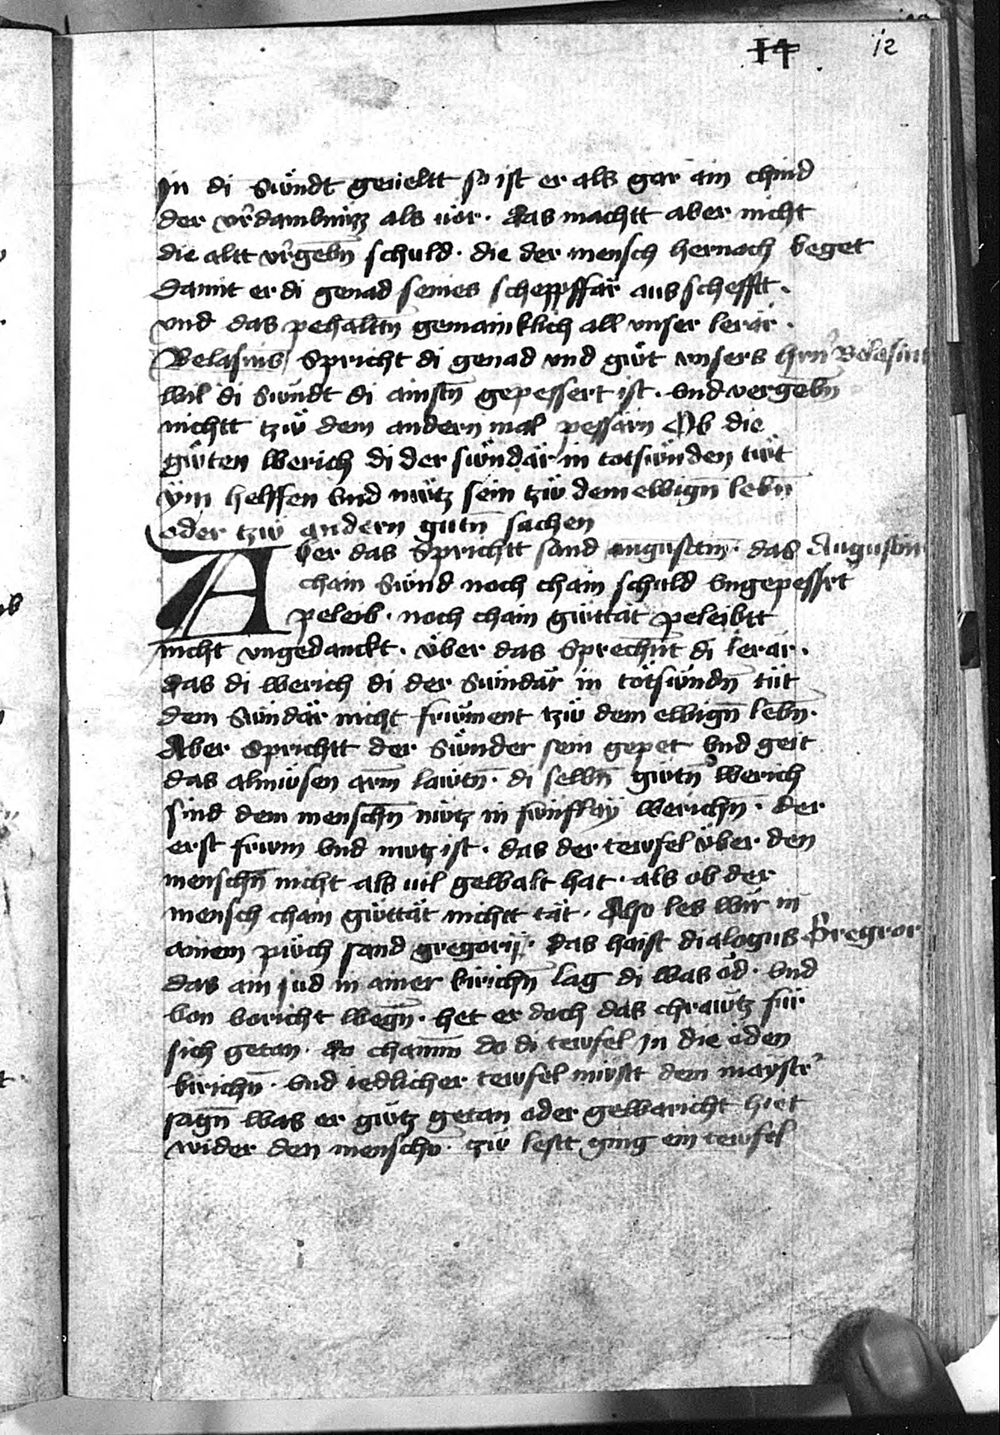 14 12
In di swndt geueltt so ist er als gar ain chind
der vrdambnuzz als uor · das machtt aber nicht
die altt vrgebn schuld · die der mensch hernach beget
damit er di genad seines scheppffär aus schefftt ·
vnd das pehaltn gemainklich all vnser lerär ·
Belasius Spricht di genad vnd guet vnsers hrn Belasius
wil di sundt di ainstn gepessert ist · vnd vergebn
nichtt tzw dem andern mal pessärn Ob die
gueten werich di der sundär in totsunden tuet
ym helffen vnd nutz sein tzw dem ewign lebn
oder tzw andern gutn sachen
Aber das Sprichtt sand augustin · das Augustin
chain sund noch chain schuld vngepessert
peleib · noch chain guettat peleibtt
nicht vngedanckt · über das Sprechnt di lerär ·
das di werich di der Sundär in totsundn tut
dem Sundär nicht frument tzw dem ewign lebn ·
Aber Sprichtt der Sunder sein gepet vnd geit
das almusen arm lawtn · di selbn gutn werich
sind dem menschn nutz in funfflay werichn · der
erst frum vnd nutz ist · das der tewfel über den
menschn nicht als uil gewalt hat · als ob der
mensch chain guettat nichtt tät · Also les wir in
ainem puech sand gregorij · das haist dialogus Gregror
das ain jud in ainer kirichn lag di was öd · vnd
von voricht wegn · het er doch das chrawtz für
sich getan · do chamm do di tewfel in die öden
kirichn · vnd iedlicher tewfel muestt dem maystr
sagn was er gutz getan oder gewaricht hiet
wider den menschn · zw lestt ging ein tewfel